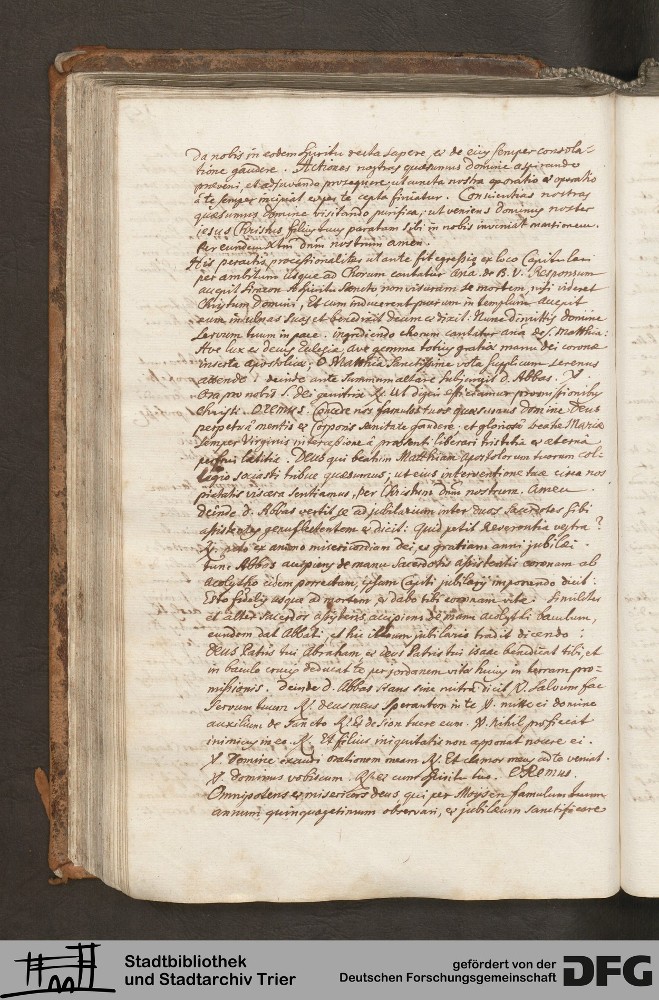 da nobis in eodem spiritu recta sapere et de eius semper consola-
tione gaudere. Actiones nostras quaesumus domine aspirando
praeveni, et adjuvando prosequere, ut cuncta nostra oratio et operatio
à te semper incipiat et per te cepta finiatur. Conscientias nostras
quaesumus domine visitando purifica, ut veniens dominus noster
iesus Christus filius tuus paratam sibi in nobis inveniat mansionem.
Per eundem Xtum dnm nostrum amen.
His peractis processionaliter ut ante fit egressio ex loco Capitulari
per ambitum usque ad Chorum cantatur ana. de B. V. Responsum
accepit Simeon à Spiritu sancto non visurum se mortem, nisi videret
Christum Domini, et cum inducerent puerum in templum accepit
eum in ulnas suas et benedixit deum et dixit. Nunc dimittis domine
servum tuum in pace. ingrediendo chorum cantatur ana de S. Matthia:
Ave lux et decus Eclesiae, ave gemma totius gratiae manu dei coronae
inserta apostolicae, O Matthia sanctissime vota supplicum serenus
attende. deinde ante summum altare subjungit d. Abbas. V.
Ora pro nobis S. dei genitrix R. Ut digni efficiamur promissionibus
Christi. OREMUS. Concede nos famulos tuos quaesumus domine Deus
perpetuâ mentis et Corporis sanitate gaudere, et gloriosae beatae Mariae
semper Virginis intercessione â praesenti liberari tristitia et aeterna
perfrui laetitia. Deus qui beatum Matthiam Apostolorum tuorum col-
legio sociasti tribue quaesumus, ut eius interventione tuae circa nos
pietatis viscera sentiamus, per Christum dnm nostrum. Amen
deinde d. Abbas vertit se ad jubilarium inter duos sacerdotes sibi
assistentes genuflectentem et dicit: Quid petit Reverentia vestra?
R. peto ex animo misericordiam dei, et gratiam anni jubilaei.
tunc Abbas accipiens de manu sacerdotis assistentis coronam ab
acolytho eidem porrectam, ipsum Capiti jubilarii imponendo dicit:
Esto fidelis usque ad mortem, et dabo tibi coronam vitae. Similiter
et alter sacerdos assistens, accipiens de manu acolythi baculum,
eundem dat Abbati, et hic illum jubilario tradit dicendo:
Deus Patris tui Abraham et Deus Patris tui isaac benedicat tibi, et
in baculo crucis deducat te per jordanem vitae huius in terram pro-
missionis. deinde d. Abbas stans sine mitra dicit V. Salvum fac
servum tuum R. deus meus sperantem in te V. mitte ei domine
auxilium de sancto R. Et de sion tuere eum. V. Nihil proficiet
inimicus in eo. R. Et filius iniquitatis non apponat nocere ei.
V. Domine exaudi orationem meam R. Et clamor meus ad te veniat.
V. dominus vobiscum. R. et cum spiritu tuo. OREMUS.
Omnipotens et misericors deus, qui per Moysen famulum tuum
annum quinquagesimum observari, et jubilaeum sanctificare
Stadtbibliothek
und Stadtarchiv Trier
gefördert von der
Deutschen Forschungsgemeinschaft
DFG